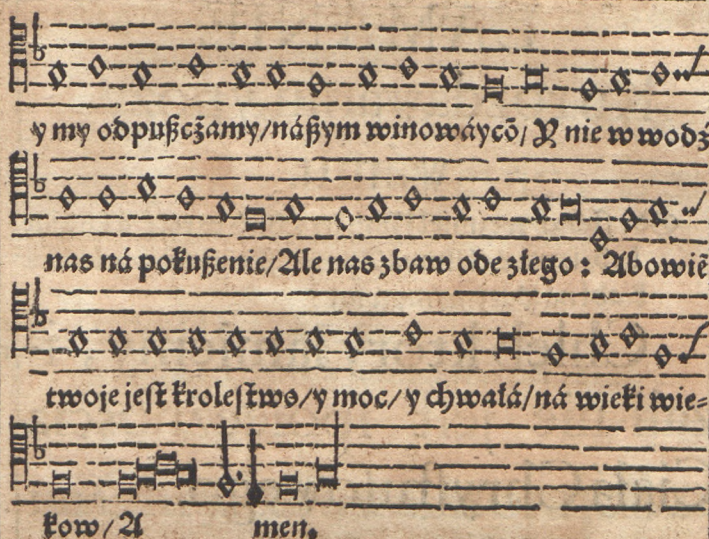 y my odpußcż̃amy/náßym winowáycõ/ Y nie w wodź
nas ná pokußenie/Ale nas zbaw ode złego: Abowiẽ
twoje jeſt kroleſtwo/y moc/y chwałá/ná wieki wie⸗
kow/A men.